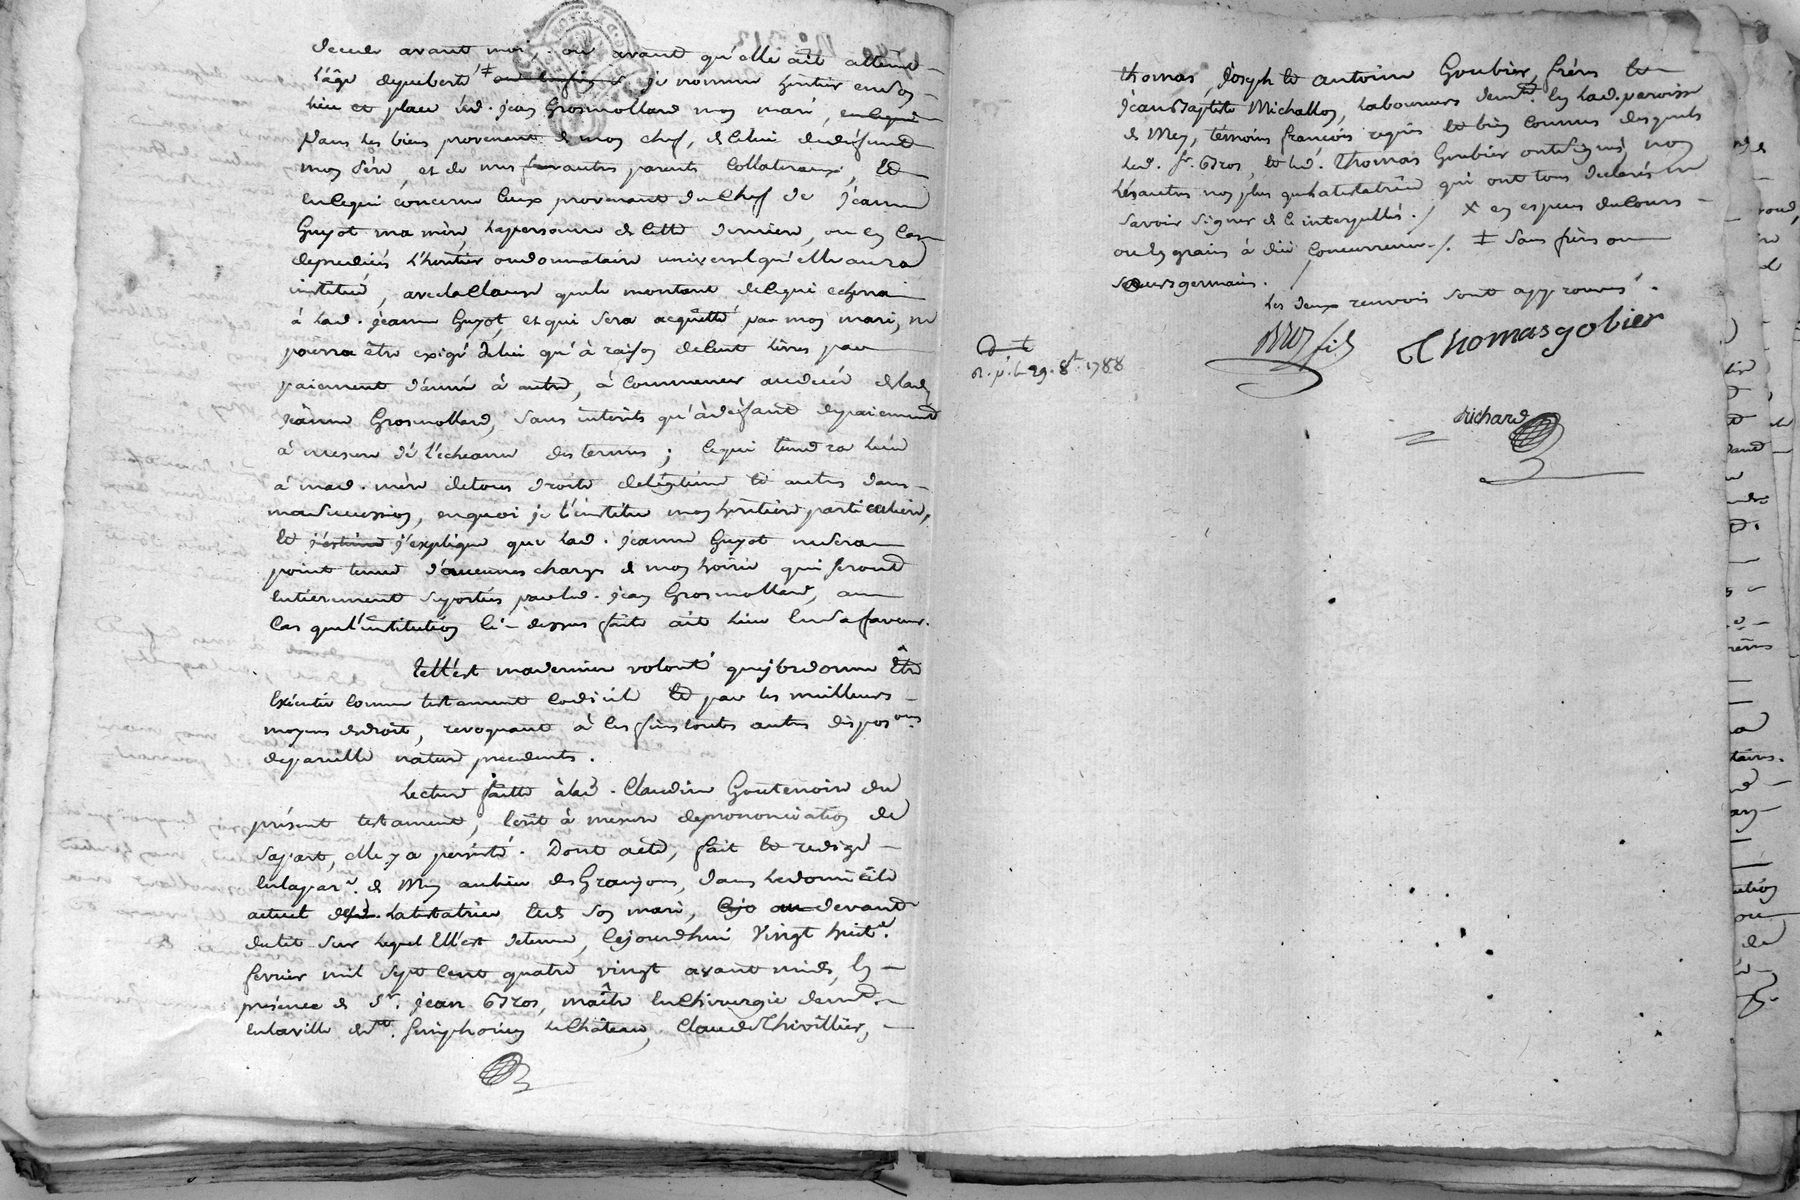 deceder avant moi, ou avant qu'elle ait atteint
l'âge de puberté ‡ je nomme heritier en son
lieu et place led. jean Grosmollard mon mari,
dans les biens provenant de mon chef, de celui du défunt
mon père, et de mes autres parents collateraux, et
en ce qui concerne ceux provenant du chef de jeanne
Guyot ma mère, la personne de cette derniere, ou en cas
de predécés l'héritier ou donnataire universel qu'elle aura
institué, avec la clause que le montant de ce qui echerra
à lad. jeanne Guyot, et qui sera acquitté par mon mari, ne
pourra être exigé de lui qu'à raison de cent livres par
paiement d'année à autre, à commencer au décés de lad.
jeanne Grosmollard, sans interêts qu'à défaut de paiement
à mesure de l'echeance des termes ; ce qui tiendra lieu
à mad. mère de tous droits de légitime et autres dans
ma succession, en quoi je l'institue mon héritiere particuliere,
et j'explique que lad. jeanne Guyot ne sera
point tenue d'aucunes charges de mon hoirie qui seront
entierement suportées par led. jean Grosmollard, au
cas que l'institution ci-dessus faite ait lieu en sa faveur.
Telle est ma derniere volonté que j'ordonne être
exécutée comme testament codicile et par les meilleurs
moyens de droit, revoquant à ces fins toutes autres disposons
de pareille nature precedentes.
Lecture faitte à lad. Claudine Goutenoire du
présent testament, écrit à mesure de prononciation de
sa part, elle y a persisté. Dont acte, fait et redigé
en la parr. de Mey au lieu des Granjons, dans le domicile
actuel de la testatrice et de son mari, devant
du lit sur lequel elle est detenue, cejourd'hui vingt huit
fevrier mil sept cent quatre vingt avant midi, en
présence de Sr. jean Bros, maître en chirurgie demt.
en la ville de St. Simphorien le Château, Claude Thivillier,
thomas, joseph et antoine Goubier, frères et
jean Baptiste Michallon, laboureurs demt. en lad. paroisse
de Mey, témoins françois requis et bien connus desquels
led. Sr. Bros, et led. Thomas Goubier ont signé, non
les autres non plus que la testatrice qui ont tous declaré ne
savoir signer de ce interpellés. / X en especes de cours
ou en grains à due concurrence ./. ‡ sans frères ou
soeurs germains.
les deux renvois sont approuvés.
BROS fils
Thomas gobier
Richard
29. 8t. 1788